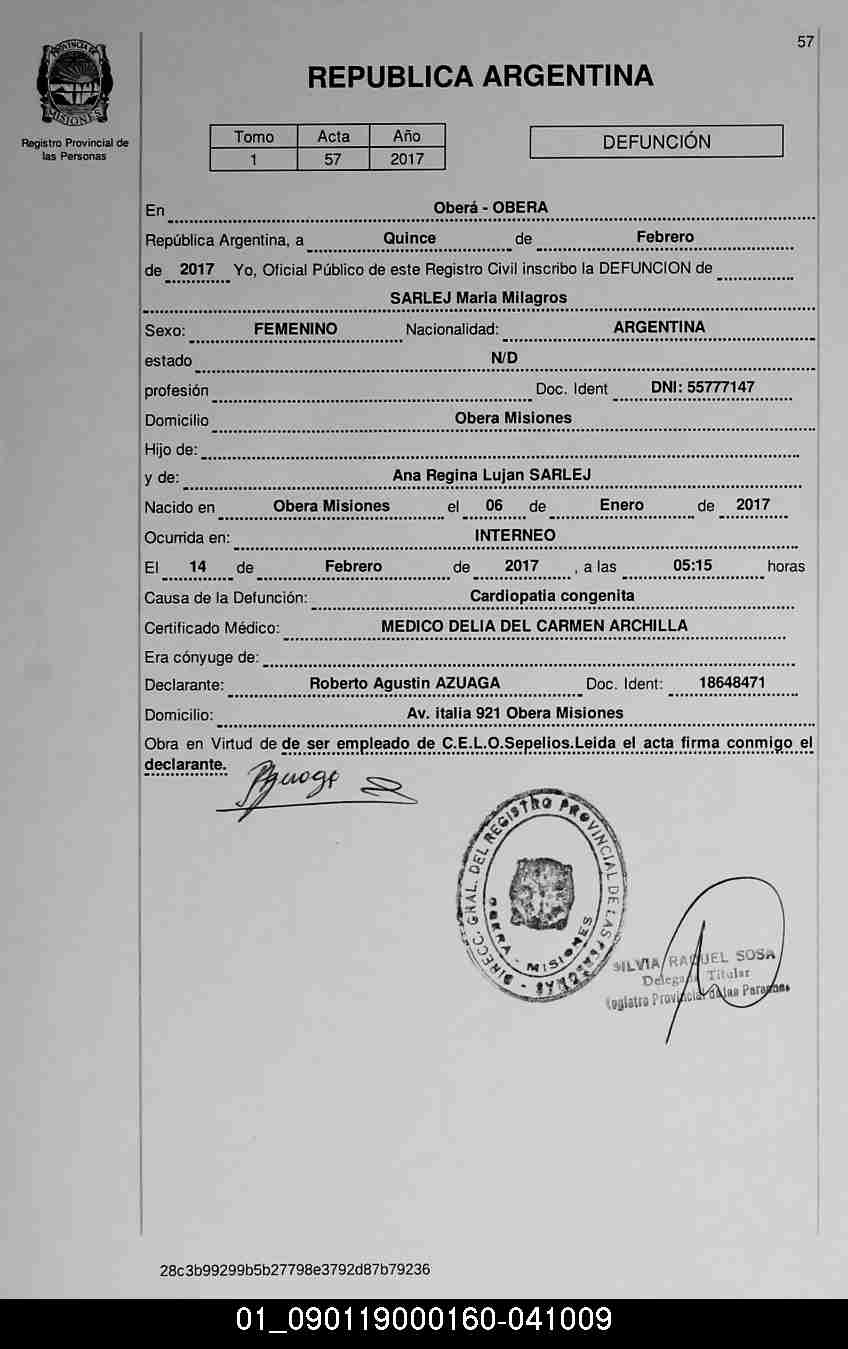 57
PROVINCIA DE
MISIONES
Registro Provincial de
las Personas
REPUBLICA ARGENTINA
Tomo Acta Año
1 57 2017
DEFUNCIÓN
En Oberá - OBERA
República Argentina, a Quince de Febrero
de 2017 Yo, Oficial Público de este Registro Civil inscribo la DEFUNCION de
SARLEJ Maria Milagros
Sexo: FEMENINO Nacionalidad: ARGENTINA
estado N/D
profesión Doc. Ident DNI: 55777147
Domicilio Obera Misiones
Hijo de:
y de: Ana Regina Lujan SARLEJ
Nacido en Obera Misiones el 06 de Enero de 2017
Ocurrida en: INTERNEO
El 14 de Febrero de 2017 , a las 05:15 horas
Causa de la Defunción: Cardiopatia congenita
Certificado Médico: MEDICO DELIA DEL CARMEN ARCHILLA
Era cónyuge de:
Declarante: Roberto Agustin AZUAGA Doc. Ident: 18648471
Domicilio: Av. italia 921 Obera Misiones
Obra en Virtud de de ser empleado de C.E.L.O.Sepelios.Leida el acta firma conmigo el
declarante.
DIRECC. GRAL. DEL REGISTRO PROVINCIAL DE LAS PERSONAS
OBERA - MISIONES
SILVIA RAQUEL SOSA
Delegada Titular
Registro Provincial de las Personas
28c3b99299b5b27798e3792d87b79236
01_090119000160-041009